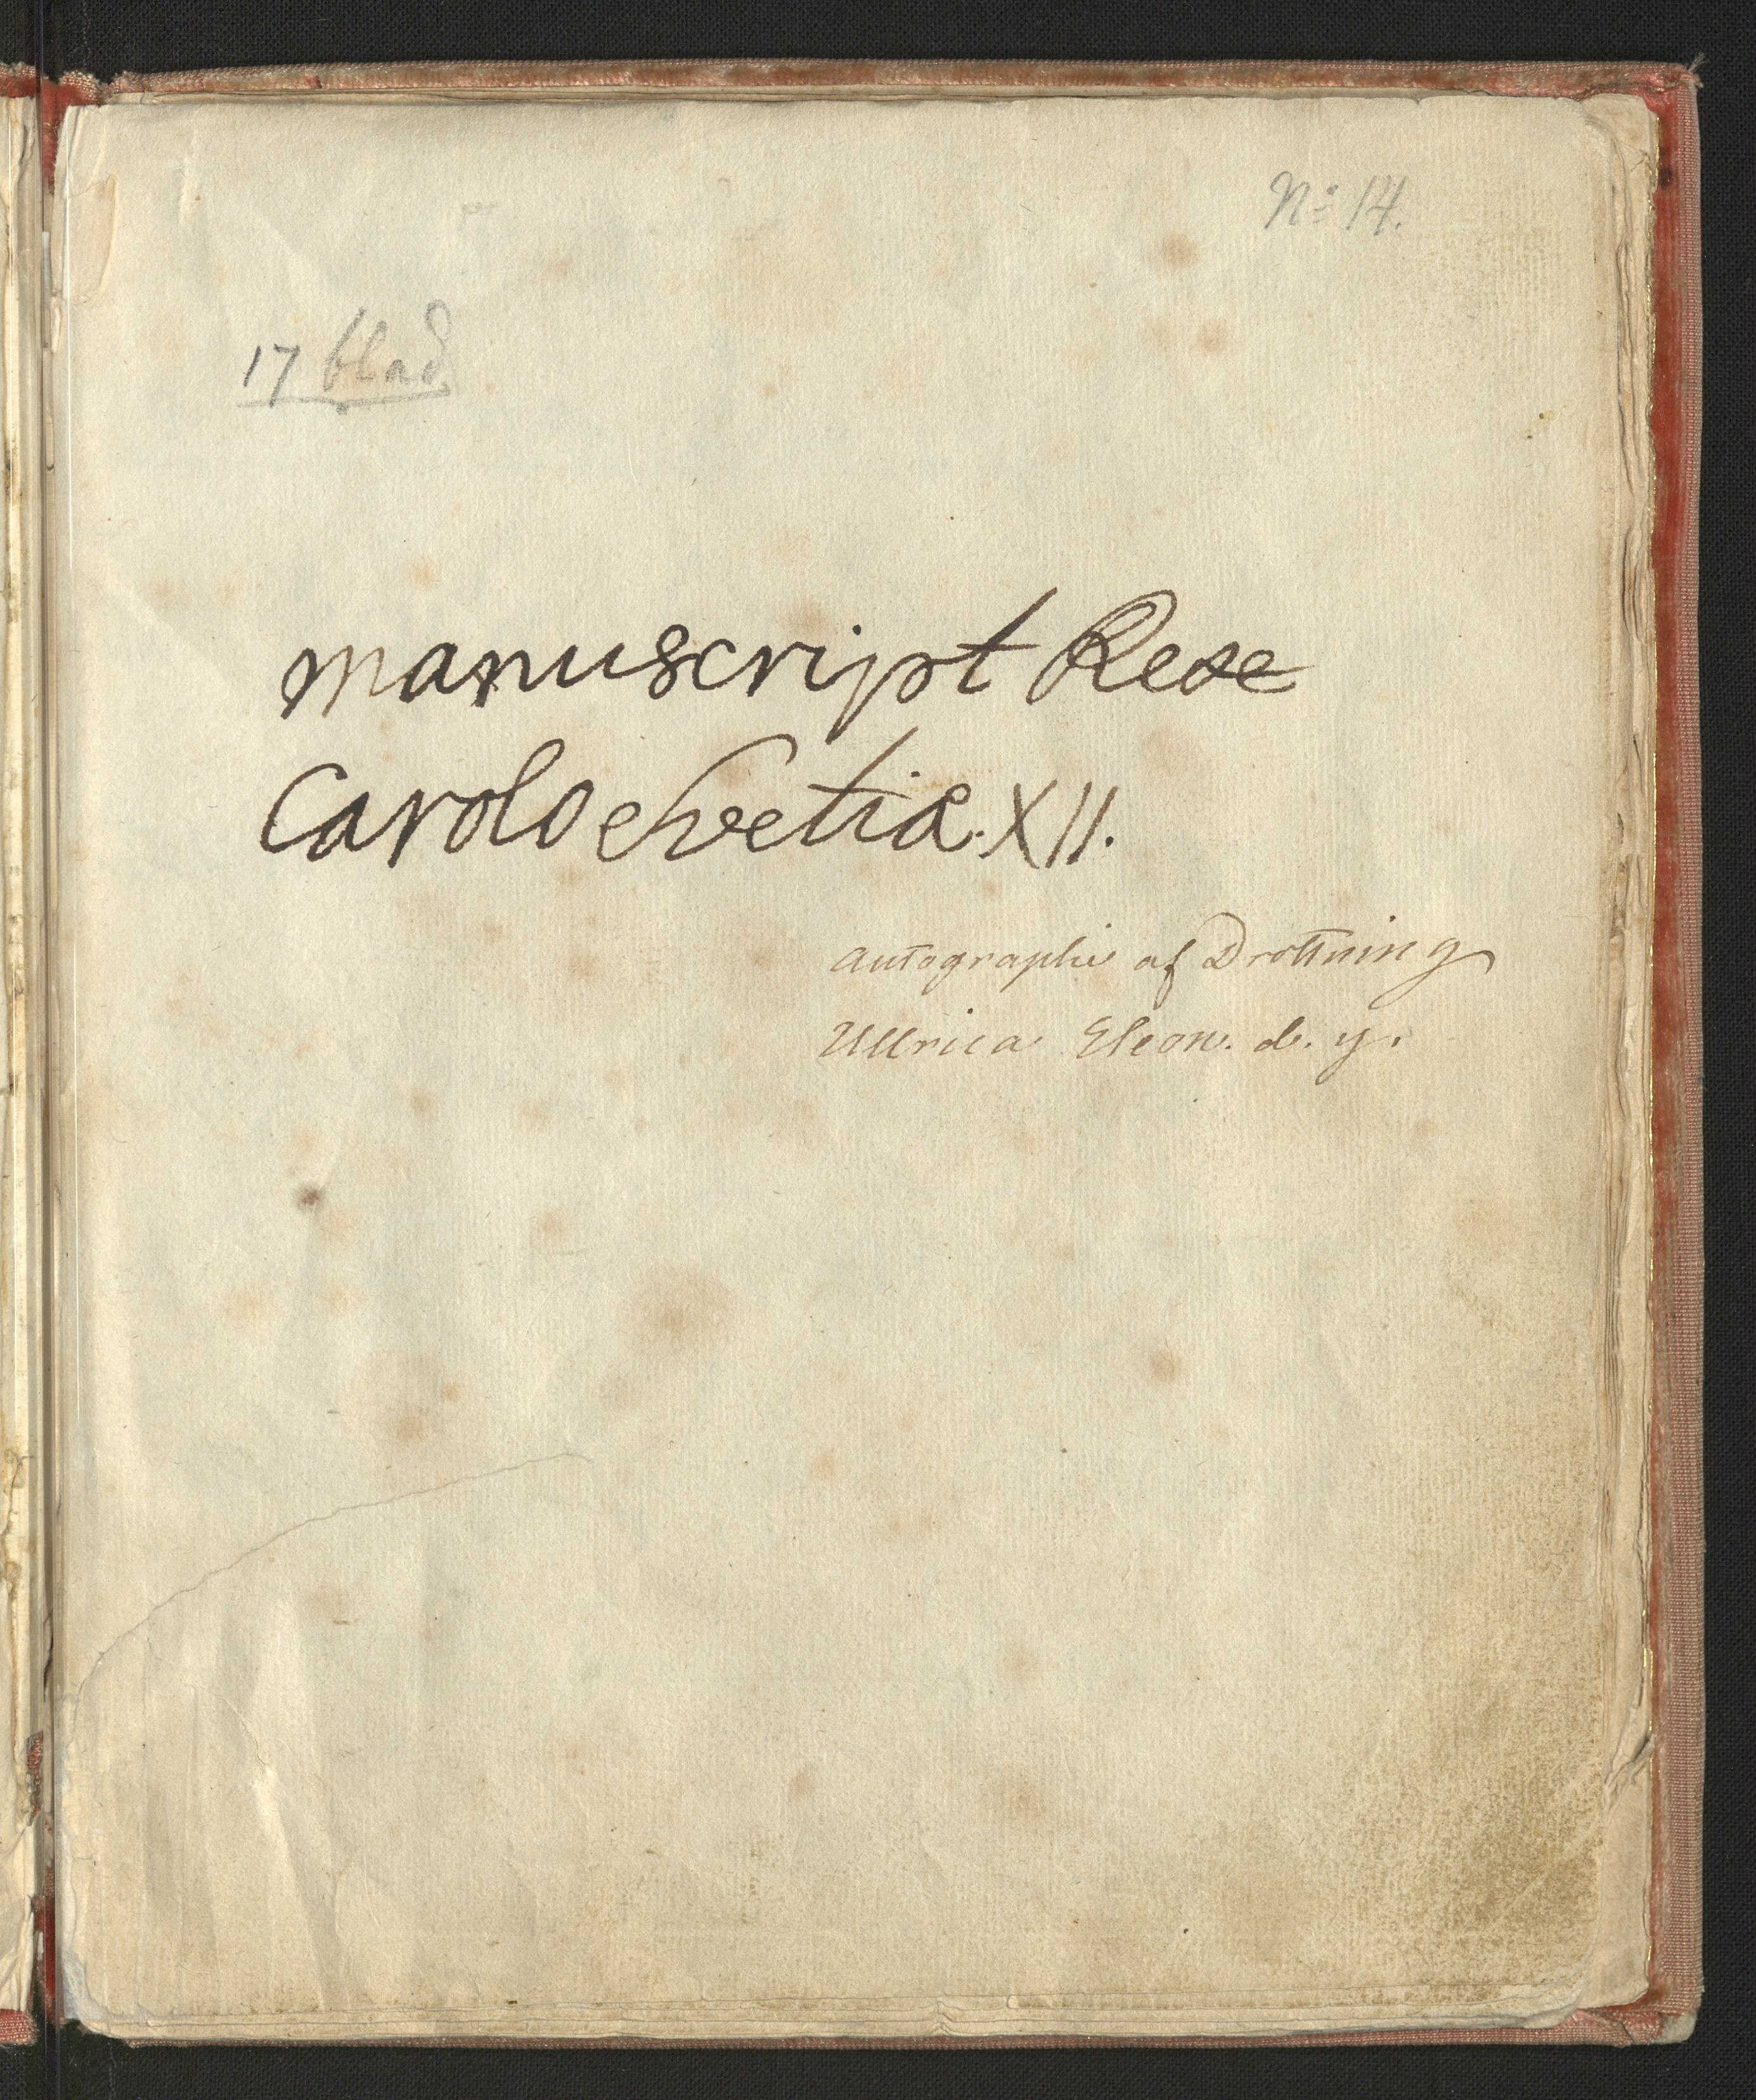 No 14.
17 blad
manuscript Rexe
Carolo shvetia. XII.
Autographe af Drottning
Ullrica Eleon. d. y.